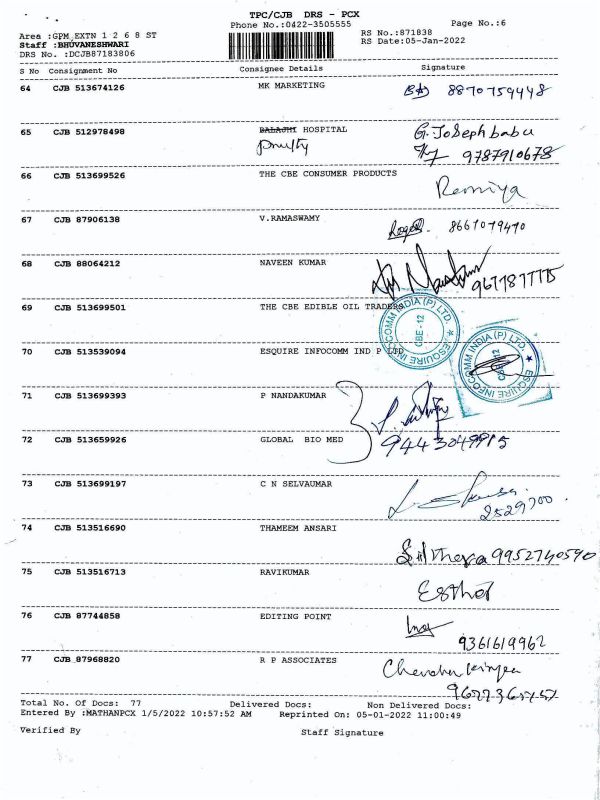 TPC/CJB DRS - PCX
Phone No.:0422-3505555 Page No.:6
Area :GPM EXTN 1 2 6 8 ST RS No.:871838
Staff :BHUVANESHWARI RS Date:05-Jan-2022
DRS No. :DCJB87183806
S No Consignment No Consignee Details Signature
64 CJB 513674126 MK MARKETING 8870759448
65 CJB 512978498 BALAJHI HOSPITAL G. Joseph babu
9787910678
66 CJB 513699526 THE CBE CONSUMER PRODUCTS Remiya
67 CJB 87906138 V.RAMASWAMY 8667079470
68 CJB 88064212 NAVEEN KUMAR
69 CJB 513699501 THE CBE EDIBLE OIL TRADERS
ESQUIRE INFOCOMM INDIA (P) LTD. ★
CBE - 12
70 CJB 513539094 ESQUIRE INFOCOMM IND P LTD
ESQUIRE INFOCOMM INDIA (P) LTD. ★
71 CJB 513699393 P NANDAKUMAR
72 CJB 513659926 GLOBAL BIO MED 9443049915
73 CJB 513699197 C N SELVAUMAR
2529700
74 CJB 513516690 THAMEEM ANSARI
9952740590
75 CJB 513516713 RAVIKUMAR Esther
76 CJB 87744858 EDITING POINT
9361619962
77 CJB 87968820 R P ASSOCIATES
Total No. Of Docs: 77 Delivered Docs: Non Delivered Docs:
Entered By :MATHANPCX 1/5/2022 10:57:52 AM Reprinted On: 05-01-2022 11:00:49
Verified By Staff Signature